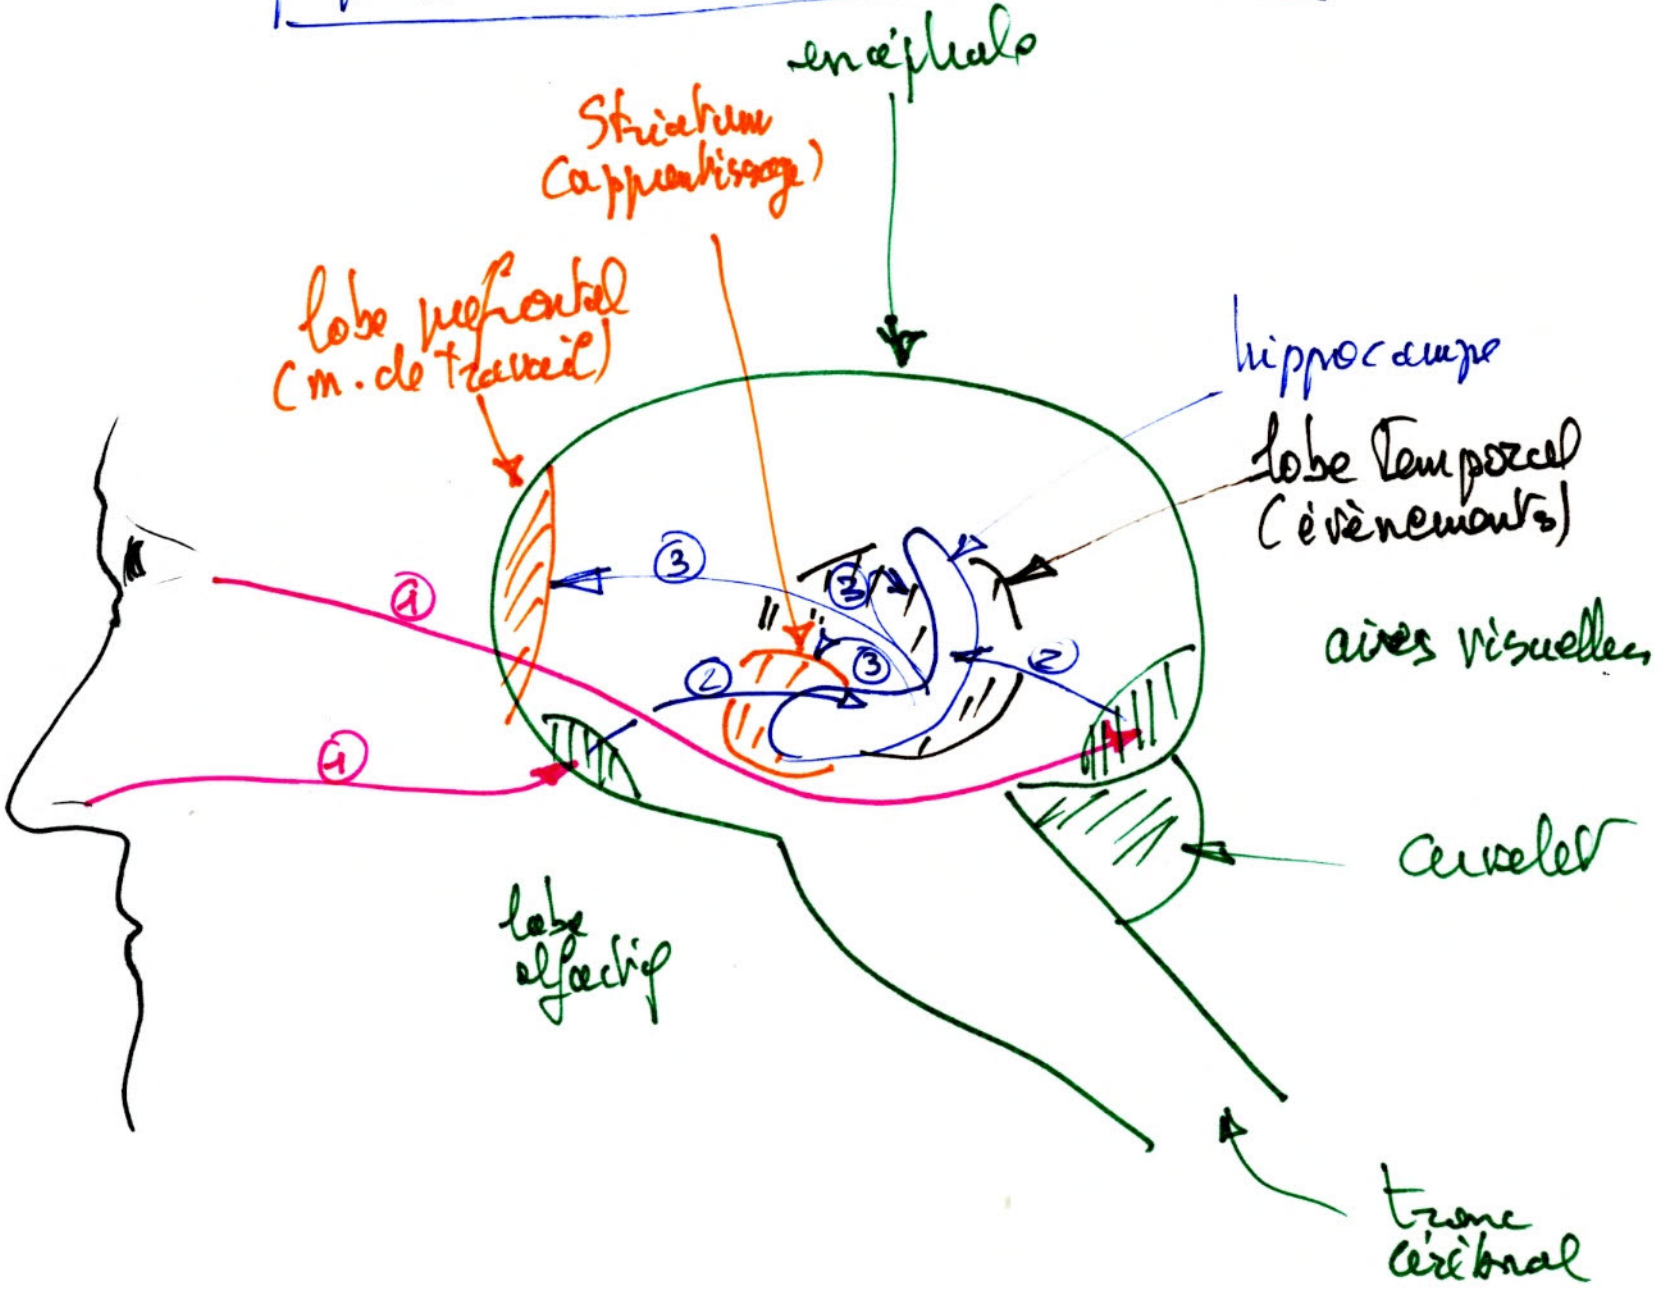 encéphale
Striatum
(apprentissage)
lobe préfrontal
(m. de travail)
hippocampe
lobe temporal
(évènements)
①
③
③
③
②
②
aires visuelles
①
cervelet
lobe
olfactif
tronc
cérébral